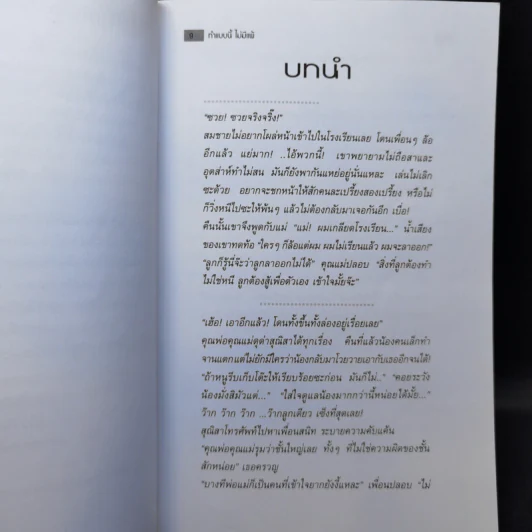 6 ทำแบบนี้ ไม่มีแพ้
บทนำ
"ซวย! ซวยจริงจริ๊ง!"
สมชายไม่อยากโผล่หน้าเข้าไปในโรงเรียนเลย โดนเพื่อนๆ ล้อ
อีกแล้ว แย่มาก! ..ไอ้พวกนี้! เขาพยายามไม่ถือสาและ
อุตส่าห์ทำไม่สน มันก็ยังพากันแหย่อยู่นั่นแหละ เล่นไม่เลิก
ซะด้วย อยากจะชกหน้าให้สักคนละเปรี้ยงสองเปรี้ยง หรือไม่
ก็วิ่งหนีไปซะให้พ้นๆ แล้วไม่ต้องกลับมาเจอกันอีก เบื่อ!
คืนนั้นเขาจึงพูดกับแม่ "แม่! ผมเกลียดโรงเรียน..." น้ำเสียง
ของเขาหดหู่ "ใครๆ ก็ล้อแต่ผม ผมไม่เรียนแล้ว ผมจะลาออก!"
"ลูกก็รู้นี่จ๊ะว่าลูกลาออกไม่ได้" คุณแม่ปลอบ "สิ่งที่ลูกต้องทำ
ไม่ใช่หนี ลูกต้องสู้เพื่อตัวเอง เข้าใจมั้ยจ๊ะ"
"เฮ้อ! เอาอีกแล้ว! โดนทั้งขึ้นทั้งล่องอยู่เรื่อยเลย"
คุณพ่อคุณแม่ดุด่าสุณิสาได้ทุกเรื่อง คืนที่แล้วน้องคนเล็กทำ
จานแตกแต่ไม่ยักมีใครว่าน้องกลับมาโวยวายเอากับเธออีกจนได้!
"ถ้าหนูรีบเก็บโต๊ะให้เรียบร้อยซะก่อน มันก็ไม่.." "คอยระวัง
น้องมั่งสิมัวแต่..." "ใส่ใจดูแลน้องมากกว่านี้หน่อยได้มั้ย..."
ว้าก ว้าก ว้าก ...ว้ากลูกเดียว เซ็งที่สุดเลย!
สุณิสาโทรศัพท์ไปหาเพื่อนสนิท ระบายความคับแค้น
"คุณพ่อคุณแม่รุมว่าชั้นใหญ่เลย ทั้งๆ ที่ไม่ใช่ความผิดของชั้น
สักหน่อย" เธอครวญ
"บางทีพ่อแม่ก็เป็นคนที่เข้าใจยากยังงี้แหละ" เพื่อนปลอบ "ไม่